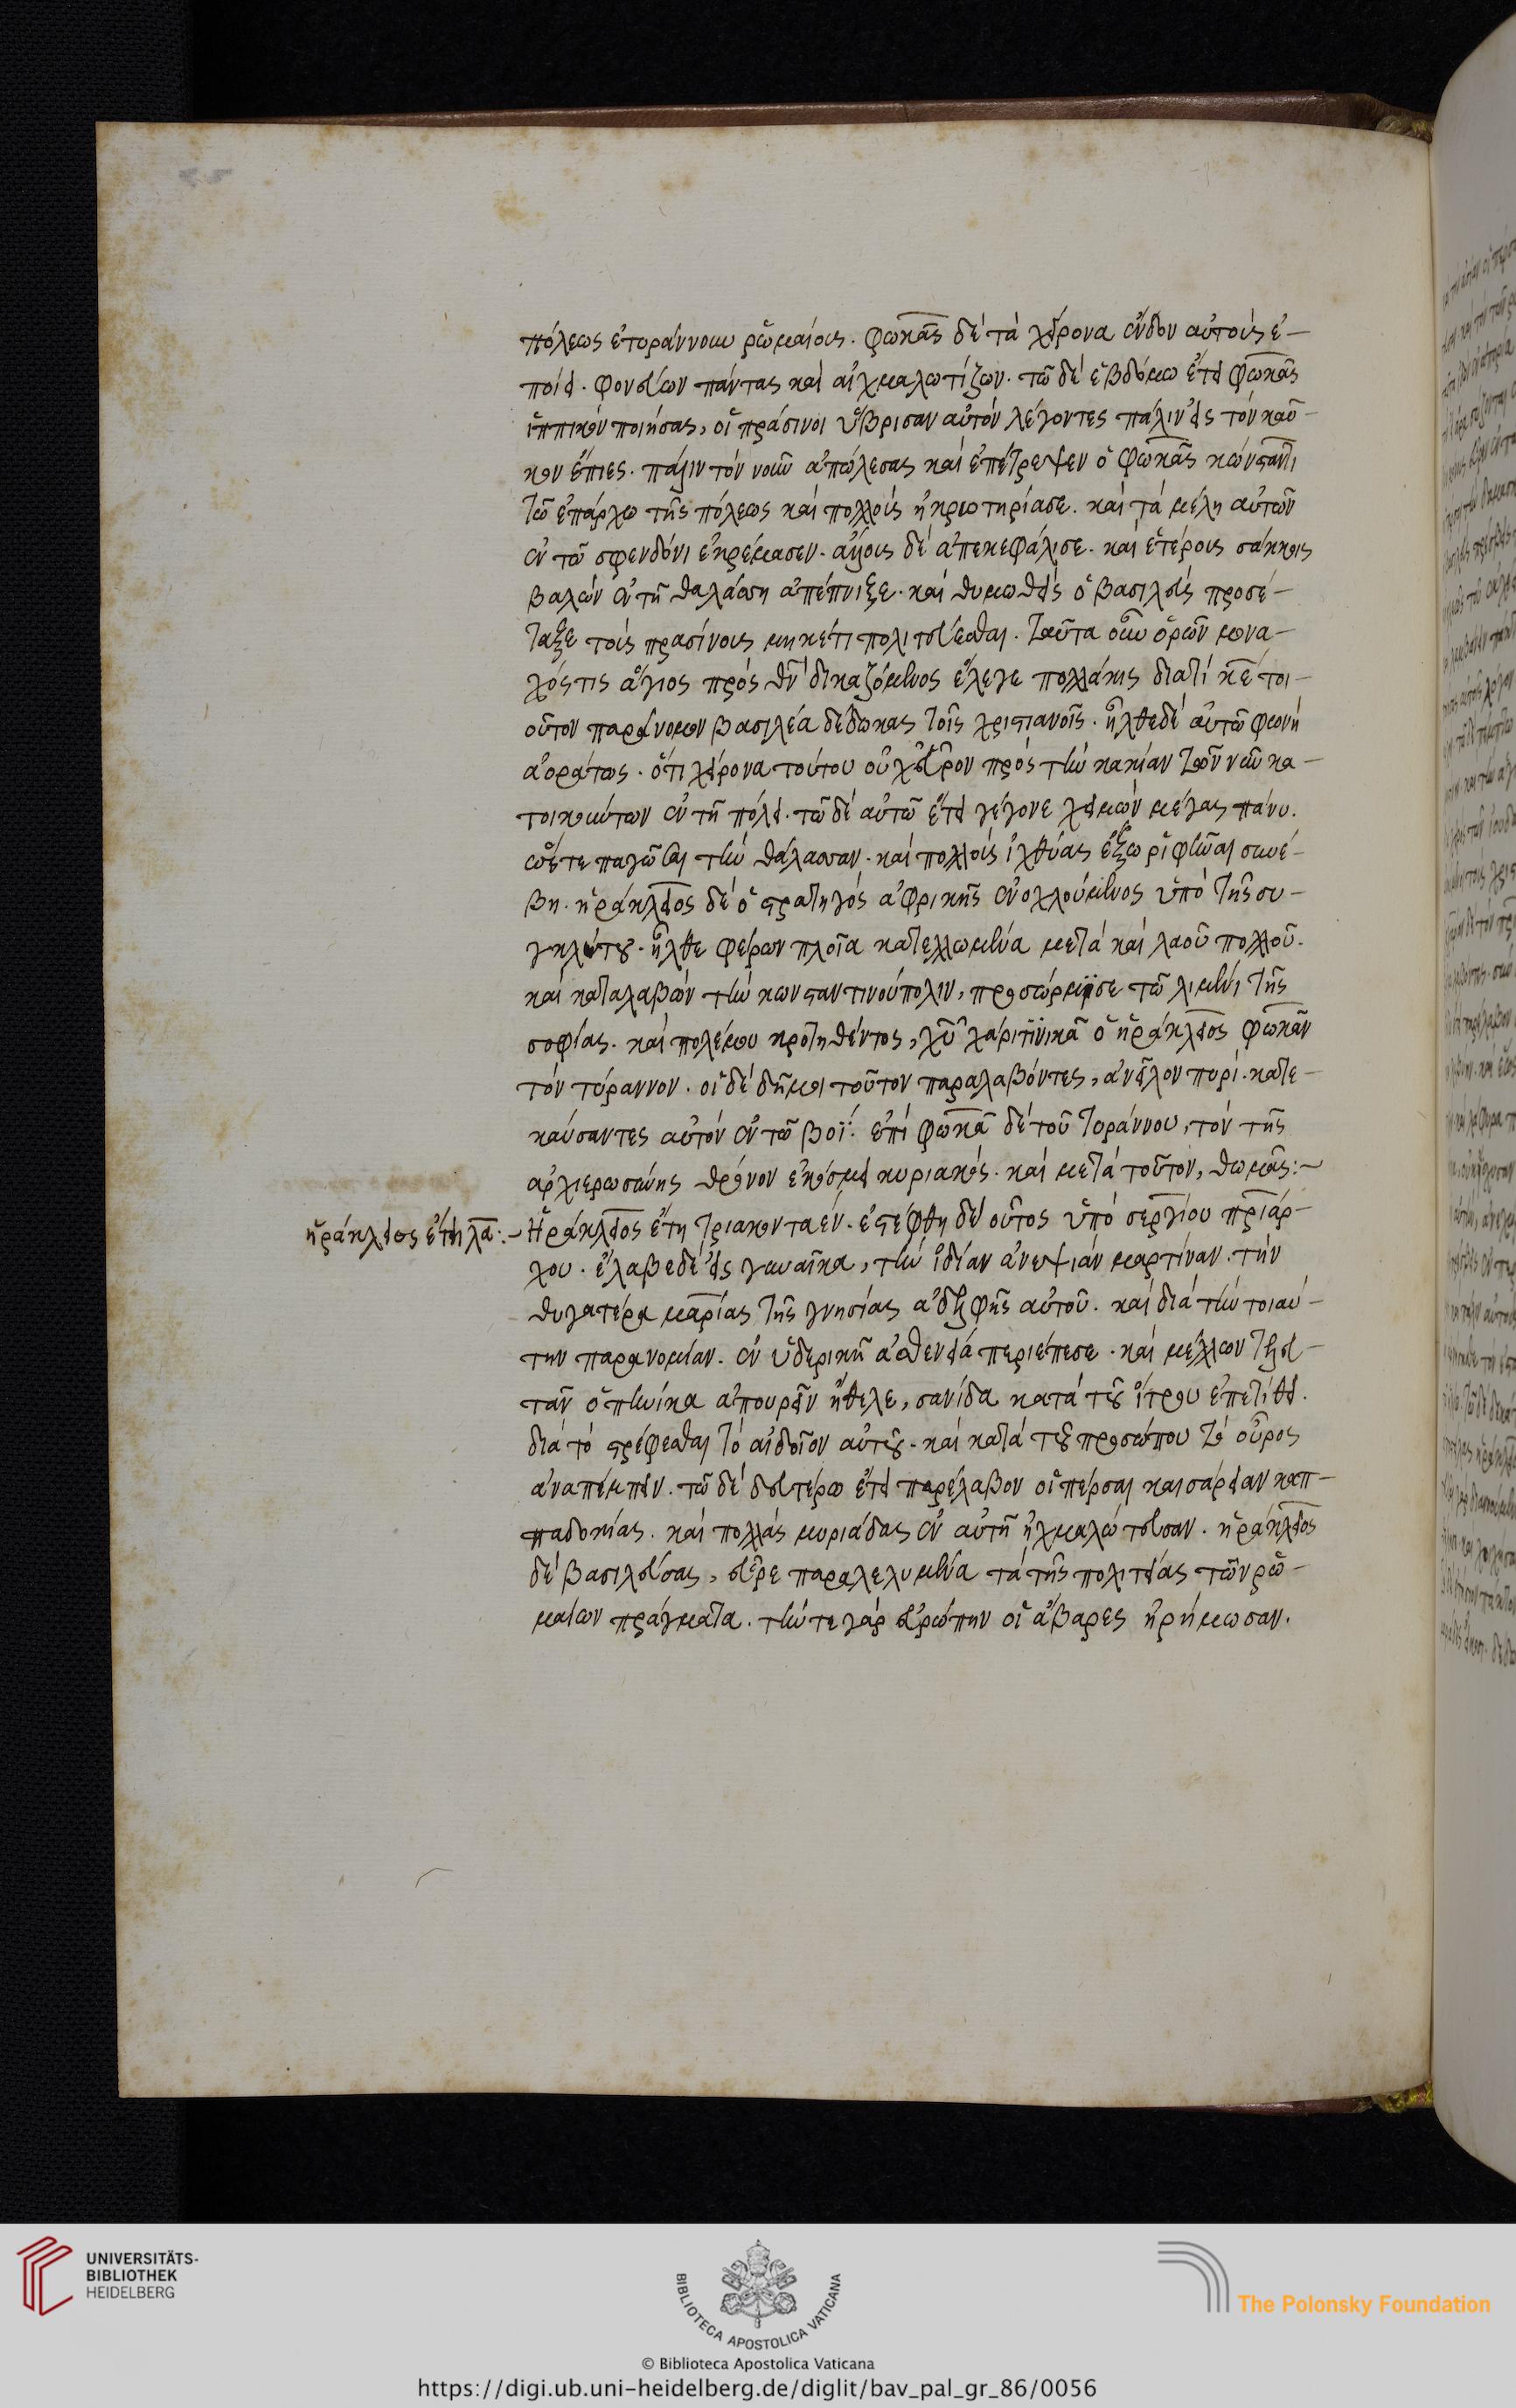 πόλεως ἐτυράννουν ῥωμαίοις. φωκᾶς δὲ τὰ χείρονα ἔνδον αὐτοὺς ἐ-
ποίει. φονεύων πάντας καὶ αἰχμαλωτίζων. τῶ δὲ ἑβδόμω ἔτει φωκᾶς
ἱππικὸν ποιήσας, οἱ πράσινοι ὕβρισαν αὐτὸν λέγοντες πάλιν εἰς τὸν καῦ-
κον ἔπιες. πάλιν τὸν νοῦν ἀπώλεσας καὶ ἐπέτρεψεν ὁ φωκᾶς κώνσταντι
τῶ ἐπάρχω τῆς πόλεως καὶ πολλοὺς ἠκρωτηρίασε. καὶ τὰ μέλη αὐτῶν
ἐν τῶ σφενδόνι ἐκρέμασεν. ἄλλους δὲ ἀπεκεφάλισε. καὶ ἑτέρους σάκκοις
βαλὼν ἐν τῇ θαλάσση ἀπέπνιξε. καὶ θυμωθεὶς ὁ βασιλεὺς προσέ-
ταξε τοὺς πρασίνους μηκέτι πολιτεύεσθαι. ταῦτα οὖν ὁρῶν μονα-
χός τις ἅγιος πρὸς θν̅ δικαζόμενος ἔλεγε πολλάκις διατί κε̅ τοι-
οῦτον παράνομον βασιλέα δέδωκας τοῖς χριστιανοῖς. ἦλθε δὲ αὐτῶ φωνὴ
ἀοράτως. ὅτι χείρονα τούτου οὐχ εὗρον πρὸς τὴν κακίαν τῶν νῦν κα-
τοικούντων ἐν τῇ πόλει. τῶ δὲ αὐτῶ ἔτει γέγονε χειμὼν μέγας πάνυ.
ὥστε παγῶσαι τὴν θάλασσαν. καὶ πολλοὺς ἰχθύας ἔξω ῥιφῆναι συνέ-
βη. ἡράκλειος δὲ ὁ στρατηγὸς ἀφρικῆς ἐνοχλούμενος ὑπὸ τῆς συ-
γκλήτου. ἦλθε φέρων πλοῖα καστελλωμένα μετὰ καὶ λαοῦ πολλοῦ.
καὶ καταλαβὼν τὴν κωνσταντινούπολιν, προσώρμησε τῶ λιμένι τῆς
σοφίας. καὶ πολέμου κροτηθέντος, χυ̅ χάριτι νικᾶ ὁ ἡράκλειος φωκᾶν
τὸν τύραννον. οἱ δὲ δῆμοι τοῦτον παραλαβόντες, ἀνεῖλον πυρὶ. κατα-
καύσαντες αὐτὸν ἐν τῶ βοΐ. ἐπὶ φωκᾶ δὲ τοῦ τυράννου, τὸν τῆς
ἀρχιερωσύνης θρόνον ἐκόσμει κυριακός. καὶ μετὰ τοῦτον, θωμᾶς:~
ἡράκλειος ἔτη λα:~ Ἡράκλειος ἔτη τριακονταέν. ἐστέφθη δὲ οὗτος ὑπὸ σεργίου πριάρ-
χου. ἔλαβε δὲ εἰς γυναῖκα, τὴν ἰδίαν ἀνεψιὰν μαρτίναν. τὴν
θυγατέρα μαρίας τῆς γνησίας ἀδελφῆς αὐτοῦ. καὶ διὰ τὴν τοιαύ-
την παρανομίαν. ἐν ὑδερικῇ ἀσθενείᾳ περιέπεσε. καὶ μέλλων τελευ-
τᾶν ὁπηνίκα ἀπουρεῖν ἤθελε, σανίδα κατὰ τοῦ ἤτρου ἐπετίθει.
διὰ τὸ στρέφεσθαι τὸ αἰδοῖον αὐτοῦ. καὶ κατὰ τοῦ προσώπου τὸ οὖρος
ἀναπέμπειν. τῶ δὲ δευτέρω ἔτει παρέλαβον οἱ πέρσαι καισάρειαν καπ-
παδοκίας. καὶ πολλὰς μυριάδας ἐν αὐτῇ ἠχμαλώτευσαν. ἡράκλειος
δὲ βασιλεύσας, εὗρε παραλελυμένα τὰ τῆς πολιτείας τῶν ῥω-
μαίων πράγματα. τήν τε γὰρ εὐρώπην οἱ ἄβαρες ἠρήμωσαν.
UNIVERSITÄTS-
BIBLIOTHEK
HEIDELBERG
BIBLIOTECA APOSTOLICA VATICANA
The Polonsky Foundation
© Biblioteca Apostolica Vaticana
https://digi.ub.uni-heidelberg.de/diglit/bav_pal_gr_86/0056